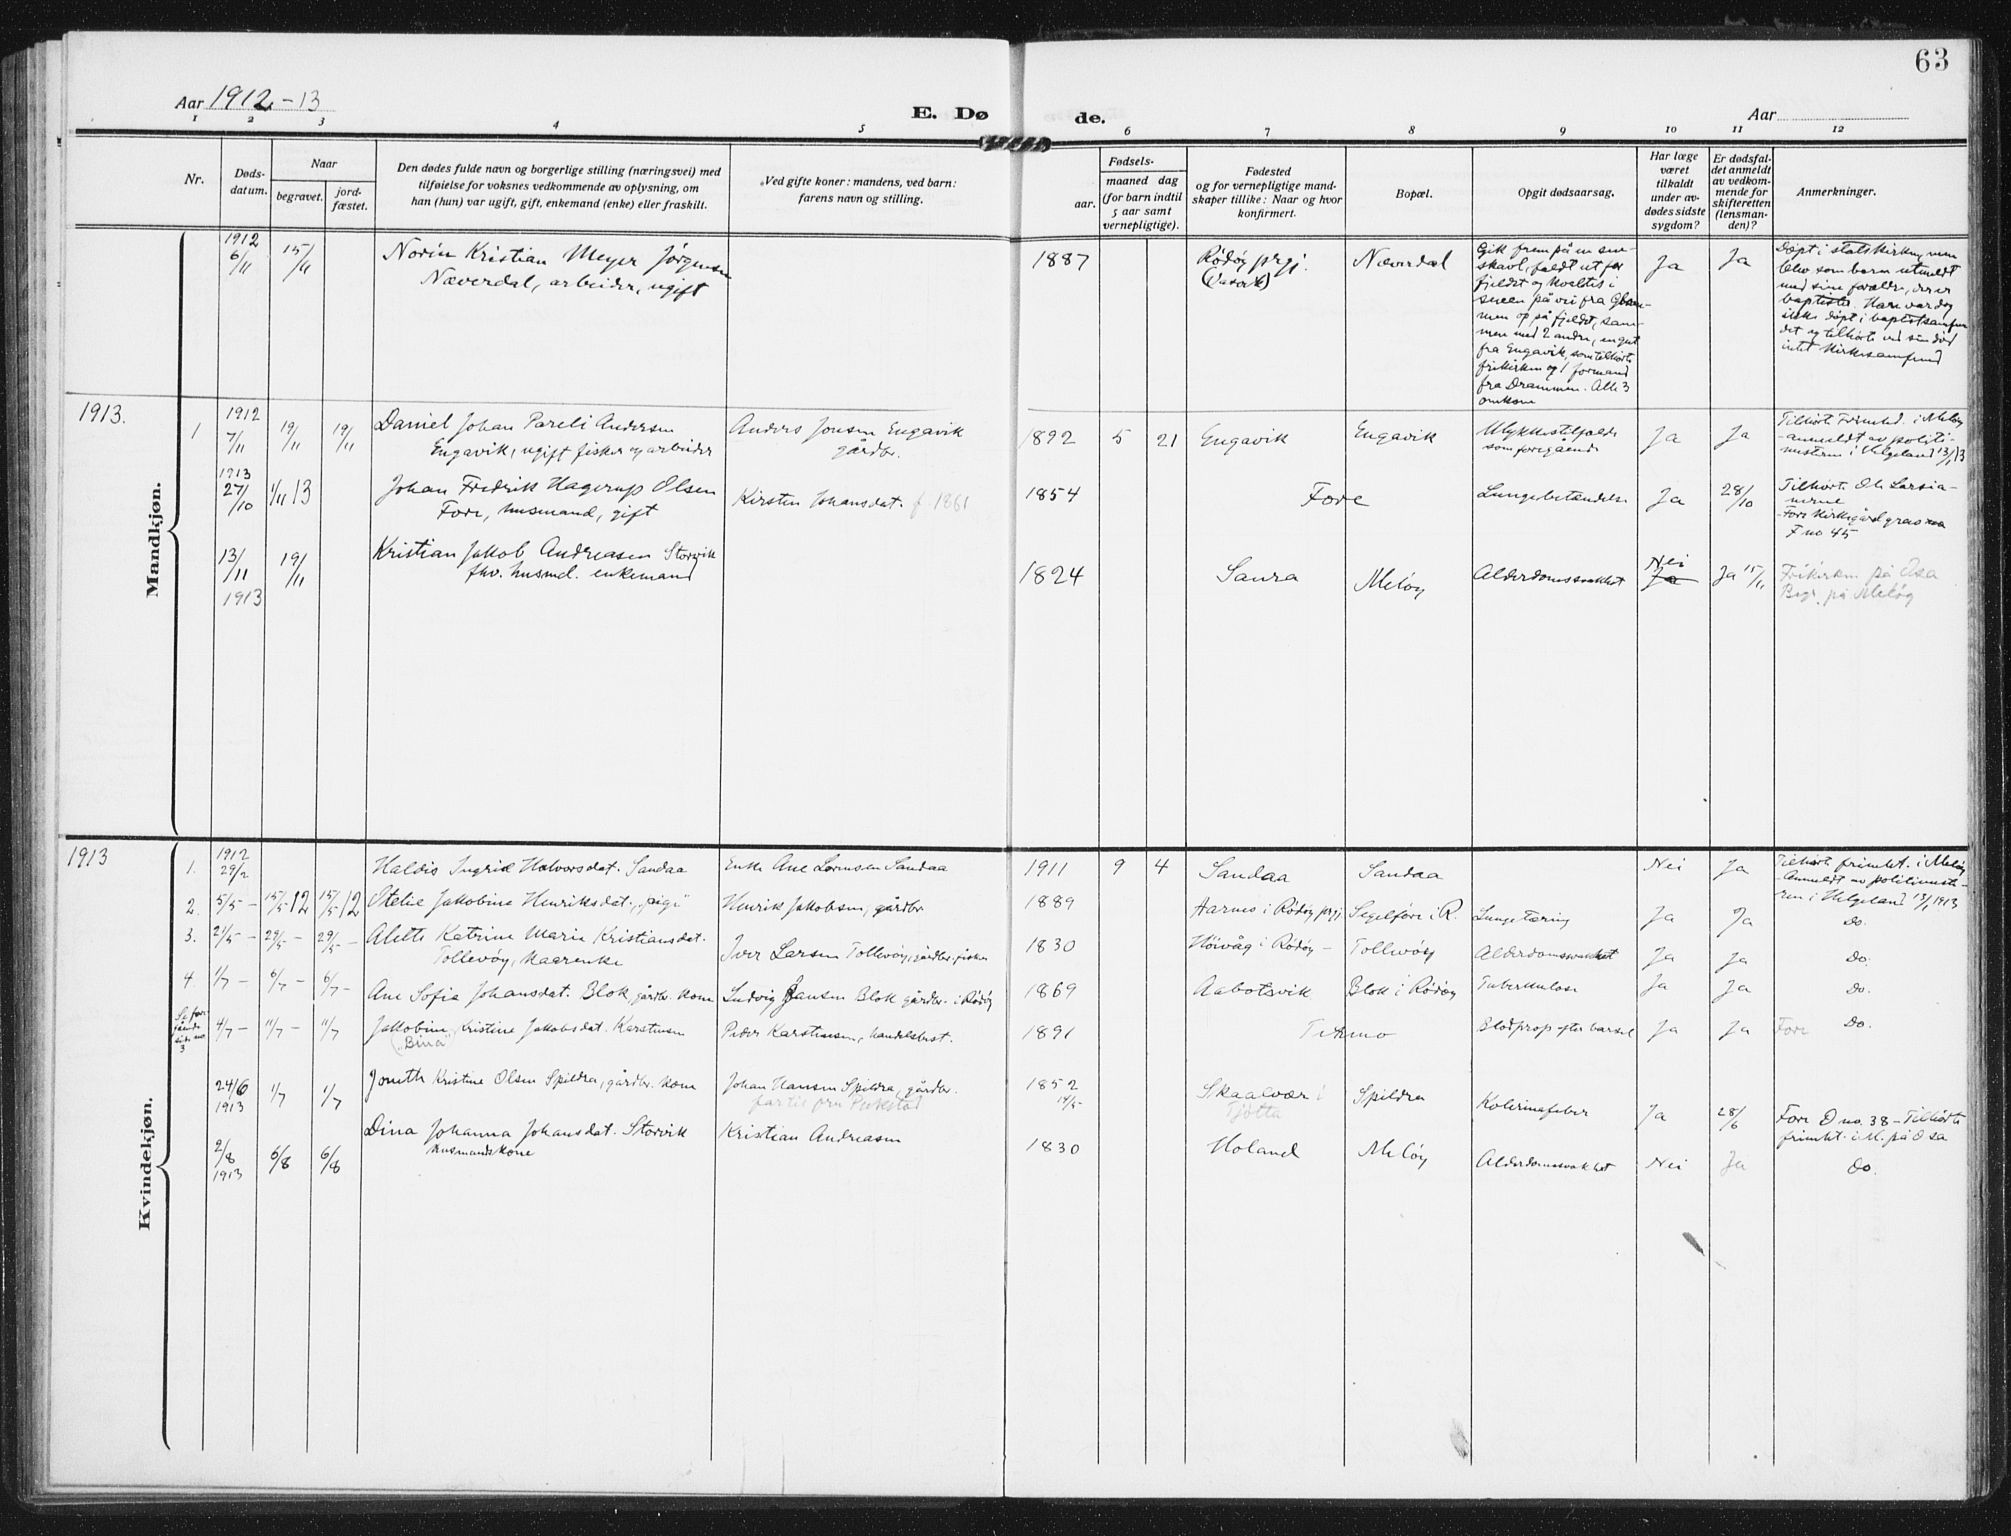 63
Aar 1912-13
E. Dø
de.
Aar
1 2 3 4 5 6 7 8 9 10 11 12
Nr.
Døds-
datum.
Naar
begravet.
jord-
fæstet.
Den dødes fulde navn og borgerlige stilling (næringsvei) med
tilføielse for voksnes vedkommende av oplysning, om
han (hun) var ugift, gift, enkemand (enke) eller fraskilt.
Ved gifte koner: mandens, ved barn:
farens navn og stilling.
Fødsels-
aar.
maaned dag
(for barn indtil
5 aar samt
vernepligtige).
Fødested
og for vernepligtige mand-
skaper tillike: Naar og hvor
konfirmert.
Bopæl.
Opgit dødsaarsag.
Har læge
været
tilkaldt
under av-
dødes sidste
sygdom?
Er dødsfal-
det anmeldt
av vedkom-
mende for
skifteretten
(lensman-
den)?
Anmerkninger.
Mandkjøn.
1912
6/11 15/11 Norin Kristian Meyer Jørgensen
Næverdal, arbeider, ugift
1887 Rødøy prgj. Næverdal
Gik frem på en sne-
skavl, faldt ut for
fjeldet og kvaltes i
sneen på vei fra Glom-
men op på fjeldet, sam-
men med 2 andre, en gut
fra Engavik, som tilhørte
frikirken og 1 formand
fra Drammen. Alle 3
omkom
Ja Ja
Døpt i statskirken, men
blev som barn utmeldt
med sine forældre, der er
baptister. Han var dog
ikke døpt i baptistsamfun-
det og tilhørte ved sin død
intet kirkesamfund
1913.
1 1912
7/11 19/11 19/11 Daniel Johan Pareli Andersen
Engavik, ugift fisker og arbeider
Anders Jonsen Engavik
gårdbr.
1892 5 21 Engavik Engavik Ulykkestilfælde
som foregående
Ja Ja
Tilhørte Frimht. i Meløy
-anmeldt av politi-
mesteren i Helgeland 13/1 13
1913
27/10 1/11 13 Johan Fredrik Hagerup Olsen
Fore, husmand, gift
Kirsten Johansdat. f. 1861
1854 Fore Lungebetændelse Ja 28/10
Tilhørte Ole Larsia-
nerne
Fore kirkegård
F no 45
13/11 19/11 Kristian Jakob Andreasen Storvik
1913 fhv. husmd. enkemand
1824 Saura Meløy Alderdomssvakhet Nei
Ja Ja 15/11
Frikirken på Øsa
Begr. på Meløy
Kvindekjøn.
1913
1. 1912
29/2 Haldis Ingrid Halvorsdat. Sandaa Enke Ane Lornsen Sandaa
1911 9 4 Sandaa Sandaa Nei Ja
Tilhørte frimht. i Meløy
-Anmeldt av politimeste-
ren i Helgeland 13/1 1913
2. 5/5 - 15/5 12 15/5 12 Otelie Jakobine Henriksdat. "pige" Henrik Jakobsen, gårdbr
1889 Aarnes i Rødøy prgj. Segelføre i R. Lungetæring Ja Ja Do.
3. 21/5 - 29/5 - 29/5 - Alette Katrine Marie Kristiansdat.
Tollevøy, kaarenke
Iver Larsen Tollevøy, gårdbr. fisker
1830 Høivåg i Rødøy - Tollevøy Alderdomssvakhet Ja Ja Do.
4 1/7 - 6/7 - 6/7 - Ane Sofia Johansdat. Blok, gårdbr. kone Ludvig Jansen Blok gårdbr. i Rødøy
1869 Aabotsvik Blok i Rødøy Tuberkulose Ja Ja Do.
Se fore-
gående
side no
3
4/7 - 11/7 - 11/7 Jakobine Kristine Jakobsdat. Karstensen
("Bina"
Peder Karstensen, handelsbest.
1891 Teksmo Blodprop efter barsel Ja Ja Fore Do.
24/6
1913 1/7 1/7 Joneth Kristine Olsen Spildra, gårdbr. kone Johan Hansen Spildra, gårdbr.
1852
14/5 Skaalvær i
Tjøtta Spildra Kolerinefeber Ja 28/6
Fore D no. 38 - Tilhørte
frimht. i M. på Øsa
2/8
1913 6/8 6/8 Dina Johanna Johansdat. Storvik
husmandskone
Kristian Andreasen
1830 Holand Meløy Alderdomssvakhet Nei Ja Do.